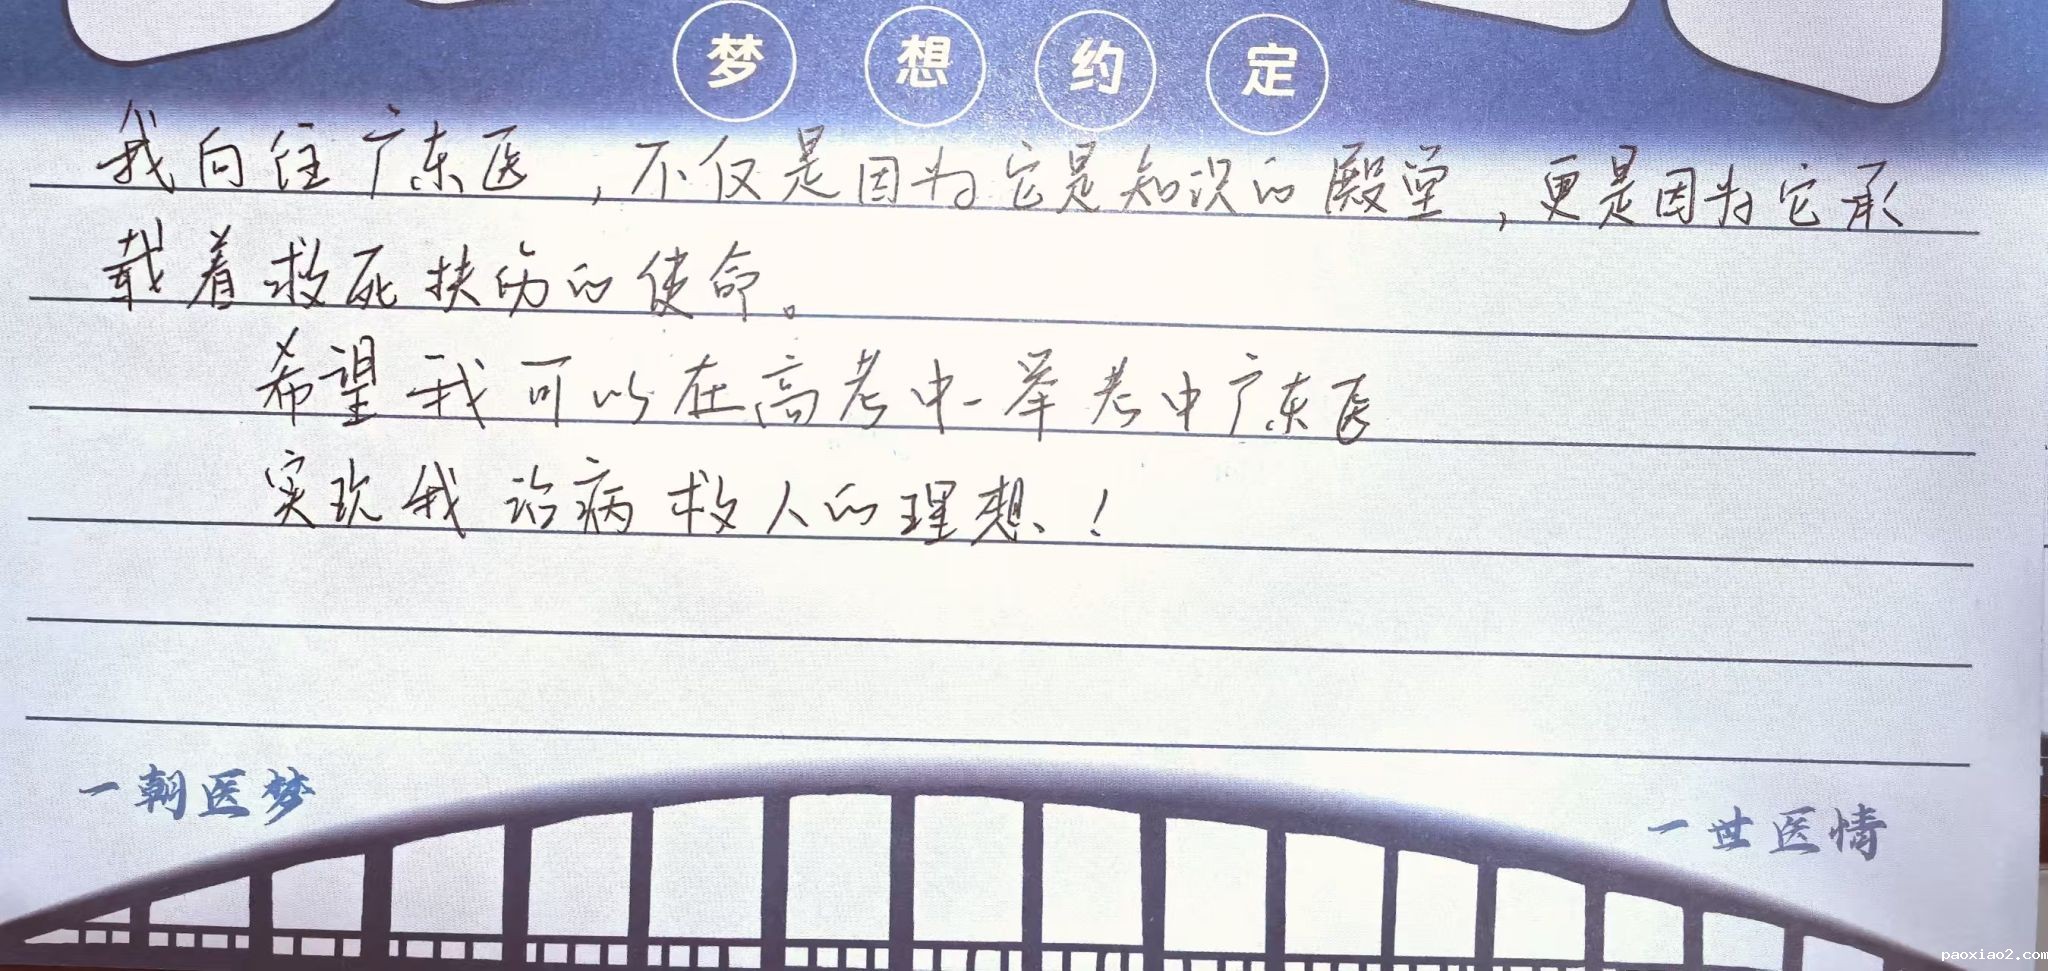 梦想约定
我向往广东医，不仅是因为它是知识的殿堂，更是因为它承
载着救死扶伤的使命。
希望我可以在高考中一举考中广东医
实现我治病救人的理想！
一朝医梦
一世医情
paoxiao2.com